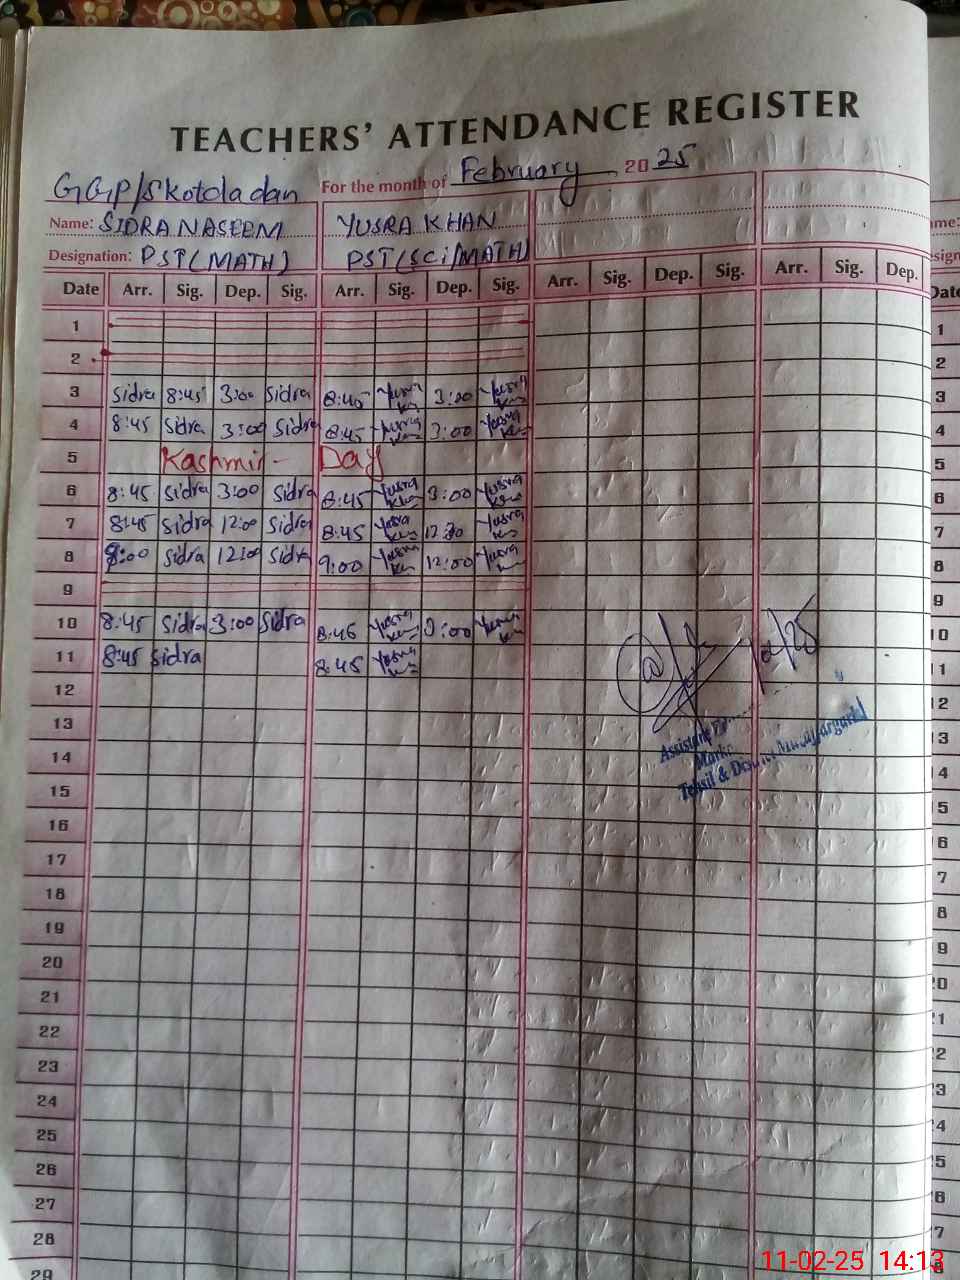 TEACHERS' ATTENDANCE REGISTER
GGP/S Kotola dan For the month of February 2025
Name: SIDRA NASEEM YUSRA KHAN
Designation: PST (MATH) PST (SCi/MATH)
Date Arr. Sig. Dep. Sig. Arr. Sig. Dep. Sig. Arr. Sig. Dep. Sig. Arr. Sig. Dep. Date
1 1
2 2
3 Sidra 8:45 3:00 Sidra 8:45 Yusra 3:00 Yusra 3
4 8:45 Sidra 3:00 Sidra 8:45 Yusra 3:00 Yusra 4
5 Kashmir - Day 5
6 8:45 Sidra 3:00 Sidra 8:45 Yusra 3:00 Yusra 6
7 8:45 Sidra 12:00 Sidra 8:45 Yusra 12:30 Yusra 7
8 8:00 Sidra 12:00 Sidra 9:00 Yusra 12:00 Yusra 8
9 9
10 8:45 Sidra 3:00 Sidra 8:45 Yusra 3:00 Yusra 10
11 8:45 Sidra 8:45 Yusra 11
12 12
13 13
Tehsil &
14 14
15 15
16 16
17 17
18 18
19 19
20 20
21 21
22 22
23 23
24 24
25 25
26 26
27 27
28
29
11-02-25 14:13